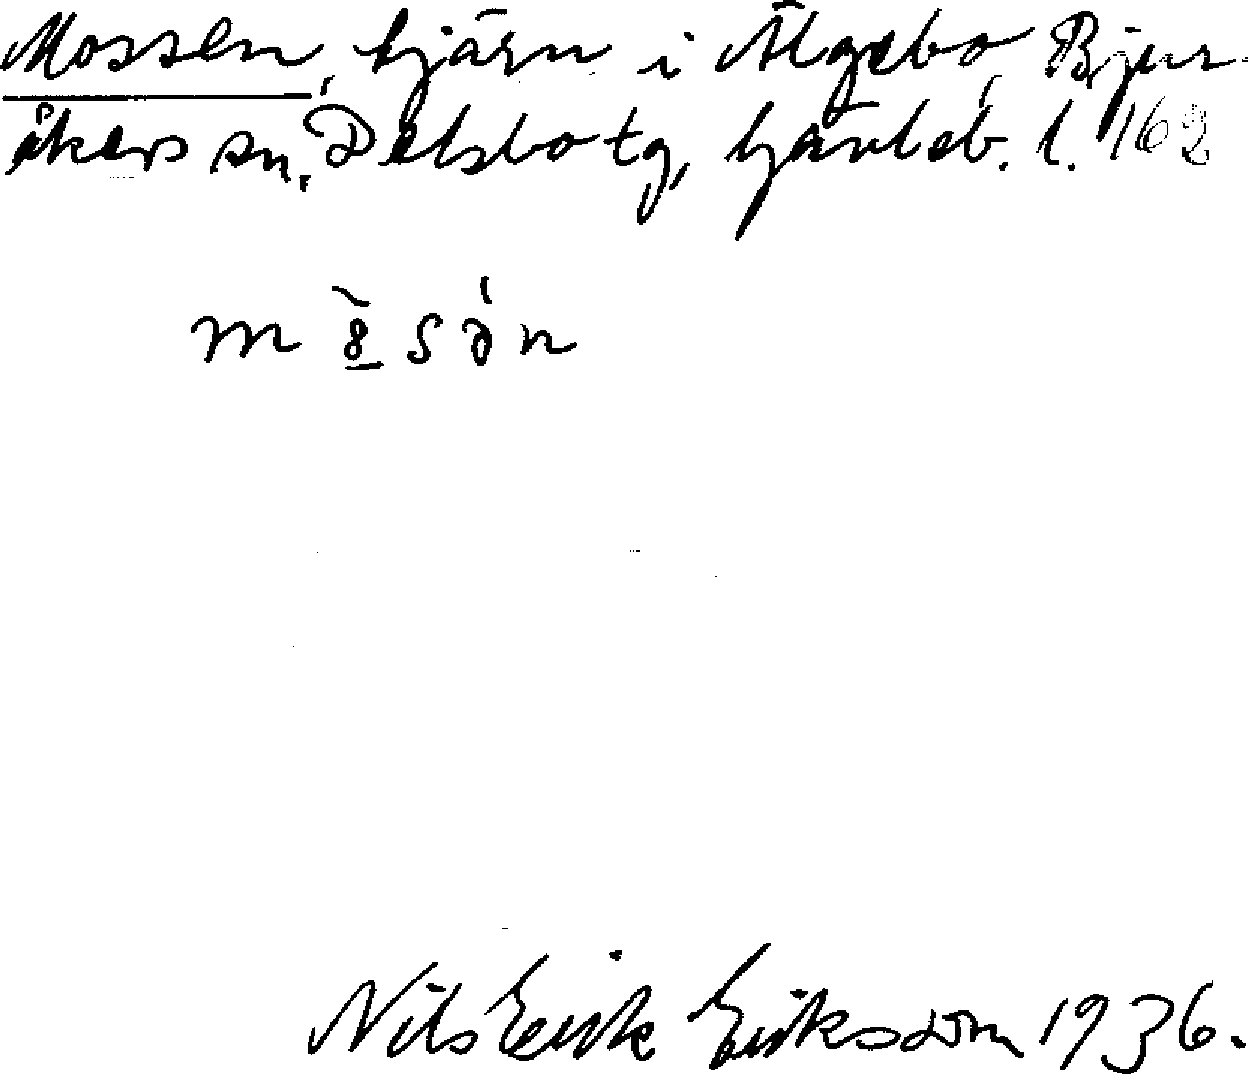 Mossen, tjärn i Älgebo, Bjur-
åkers sn, Delsbo tg, Gävleb. l. 162
Nils Erik Eriksson 1936.